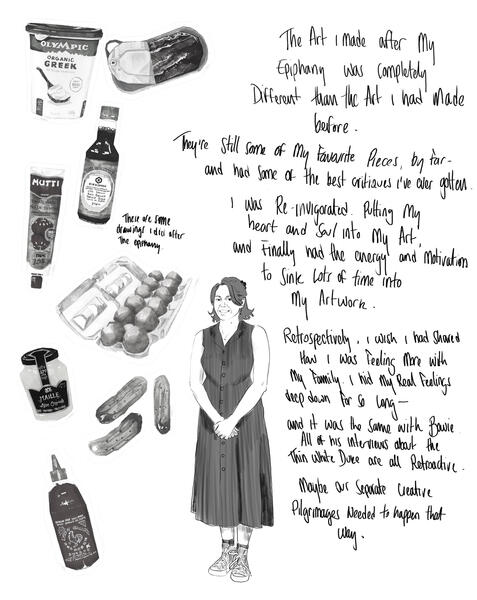 The Art i made after My
Epiphany was completely
Different than the Art i had made
before.
They're still some of My favourite Pieces, by far-
and had some of the best critiques i've ever gotten.
i was Re-invigorated. Putting My
heart and Soul into My Art,
and Finally had the energy and motivation
to Sink Lots of time into
My Artwork.
Retrospectively, i wish i had shared
How i was Feeling More with
My Family. i hid My Real Feelings
deep down for so long—
and it was the same with Bowie
All of his interviews about the
Thin White Duke are all Retroactive.
Maybe our Separate Creative
Pilgrimages Needed to happen that
way.
These are some
drawings i did after
the epiphany.
OLYMPIC
ORGANIC
GREEK
MUTTI
MAILLE